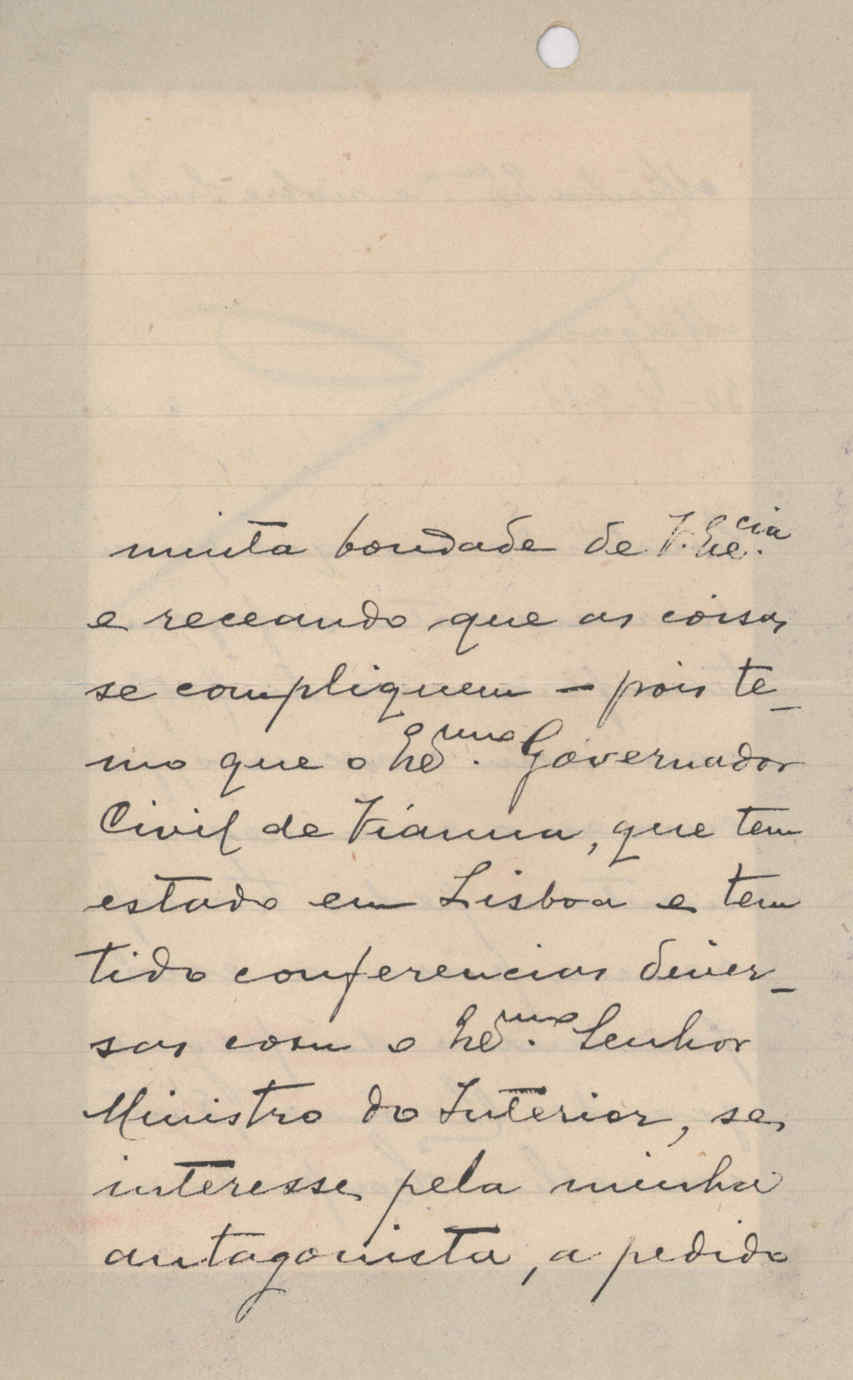 muita bondade de V. Ex.cia
e receando que as coisas
se compliquem – pois te-
mo que o Ex.mo Governador
Civil de Vianna, que tem
estado em Lisboa e tem
tido conferencias diver-
sas com o Ex.mo Senhor
Ministro do Interior, se
interesse pela minha
antagonista, a pedido